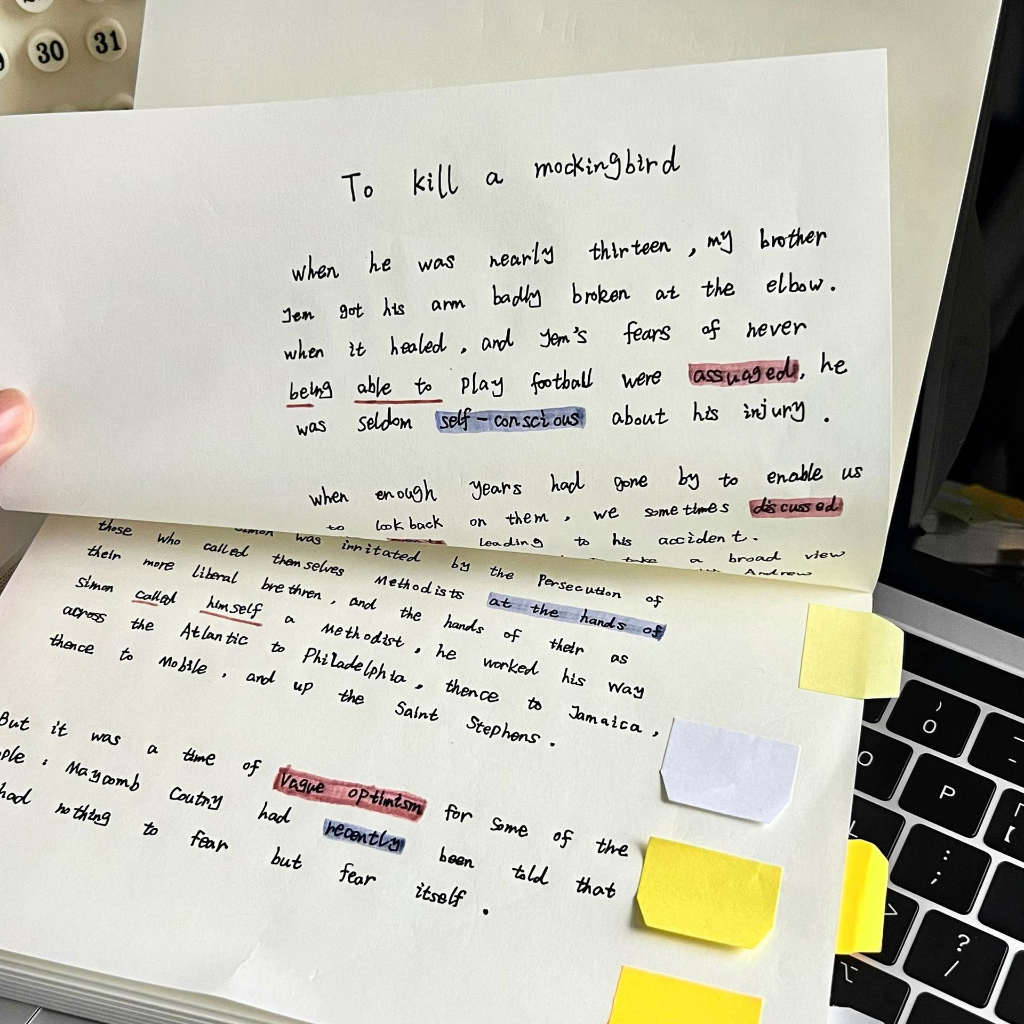 30 31
To kill a mockingbird
when he was nearly thirteen, my brother
Jem got his arm badly broken at the elbow.
when it healed, and Jem's fears of never
being able to play football were assuaged, he
was seldom self-conscious about his injury.
when enough years had gone by to enable us
to look back on them, we sometimes discussed
leading to his accident.
take a broad view
Andrew
Simon was irritated by the Persecution of
those who called themselves Methodists at the hands of
their more liberal brethren, and the hands of their as
Simon called himself a Methodist, he worked his way
across the Atlantic to Philadelphia, thence to Jamaica,
thence to Mobile, and up the Saint Stephens.
But it was a time of Vague optimism for some of the
Maycomb Coutny had recently been told that
had nothing to fear but fear itself.
)
0
O
P
L
:
;
?
/
>
⌥